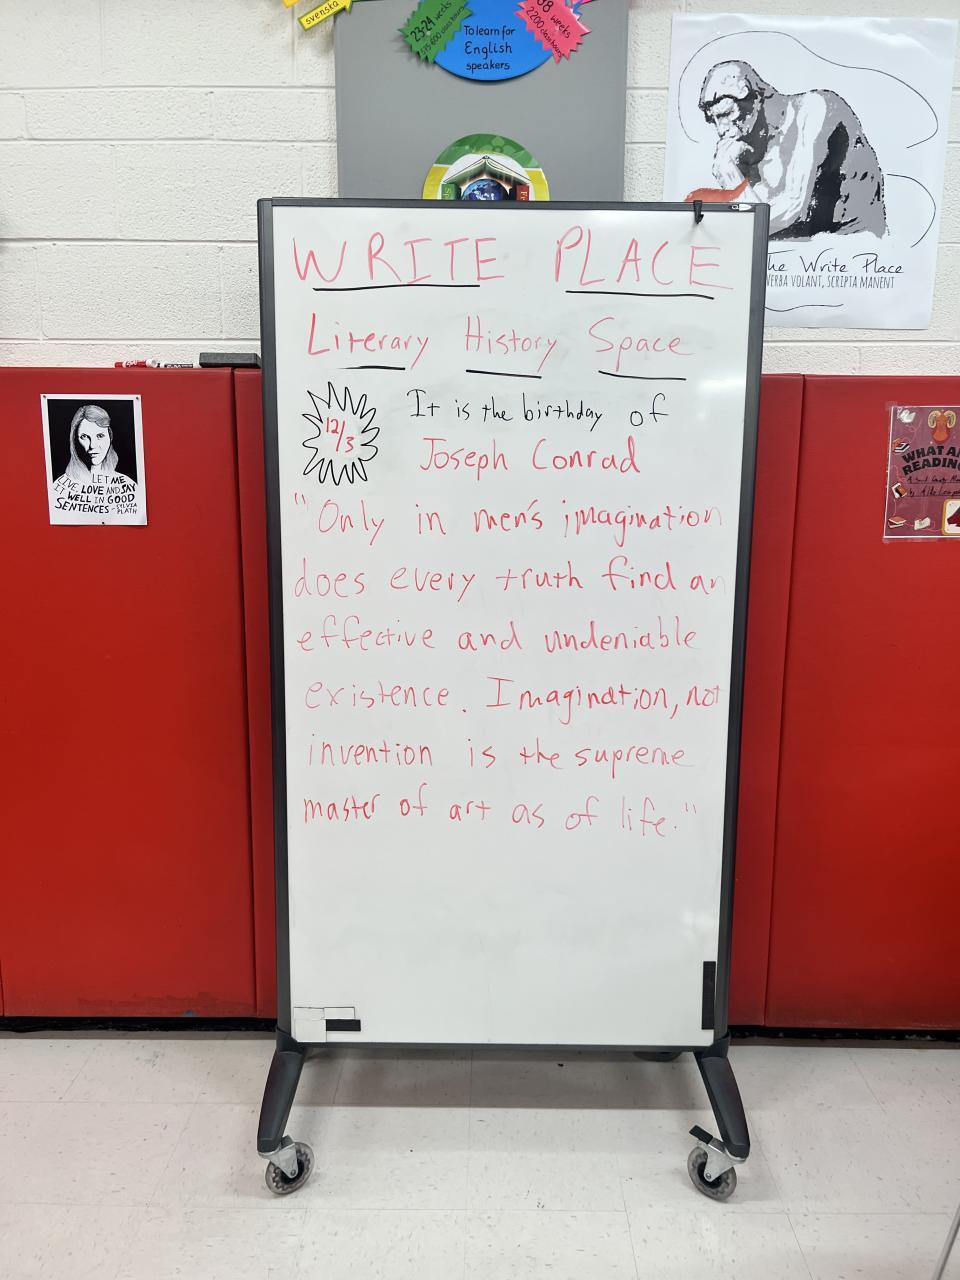 svenska
23-24 weeks
575-600 class hours
To learn for
English
speakers
88 weeks
2200 class hours
The Write Place
VERBA VOLANT, SCRIPTA MANENT
WRITE PLACE
Literary History Space
12/3
It is the birthday of
Joseph Conrad
"Only in men's imagination
does every truth find an
effective and undeniable
existence. Imagination, not
invention is the supreme
master of art as of life."
LET ME
LIVE, LOVE AND SAY
IT WELL IN GOOD
SENTENCES - SYLVIA
PLATH
WHAT A
READING